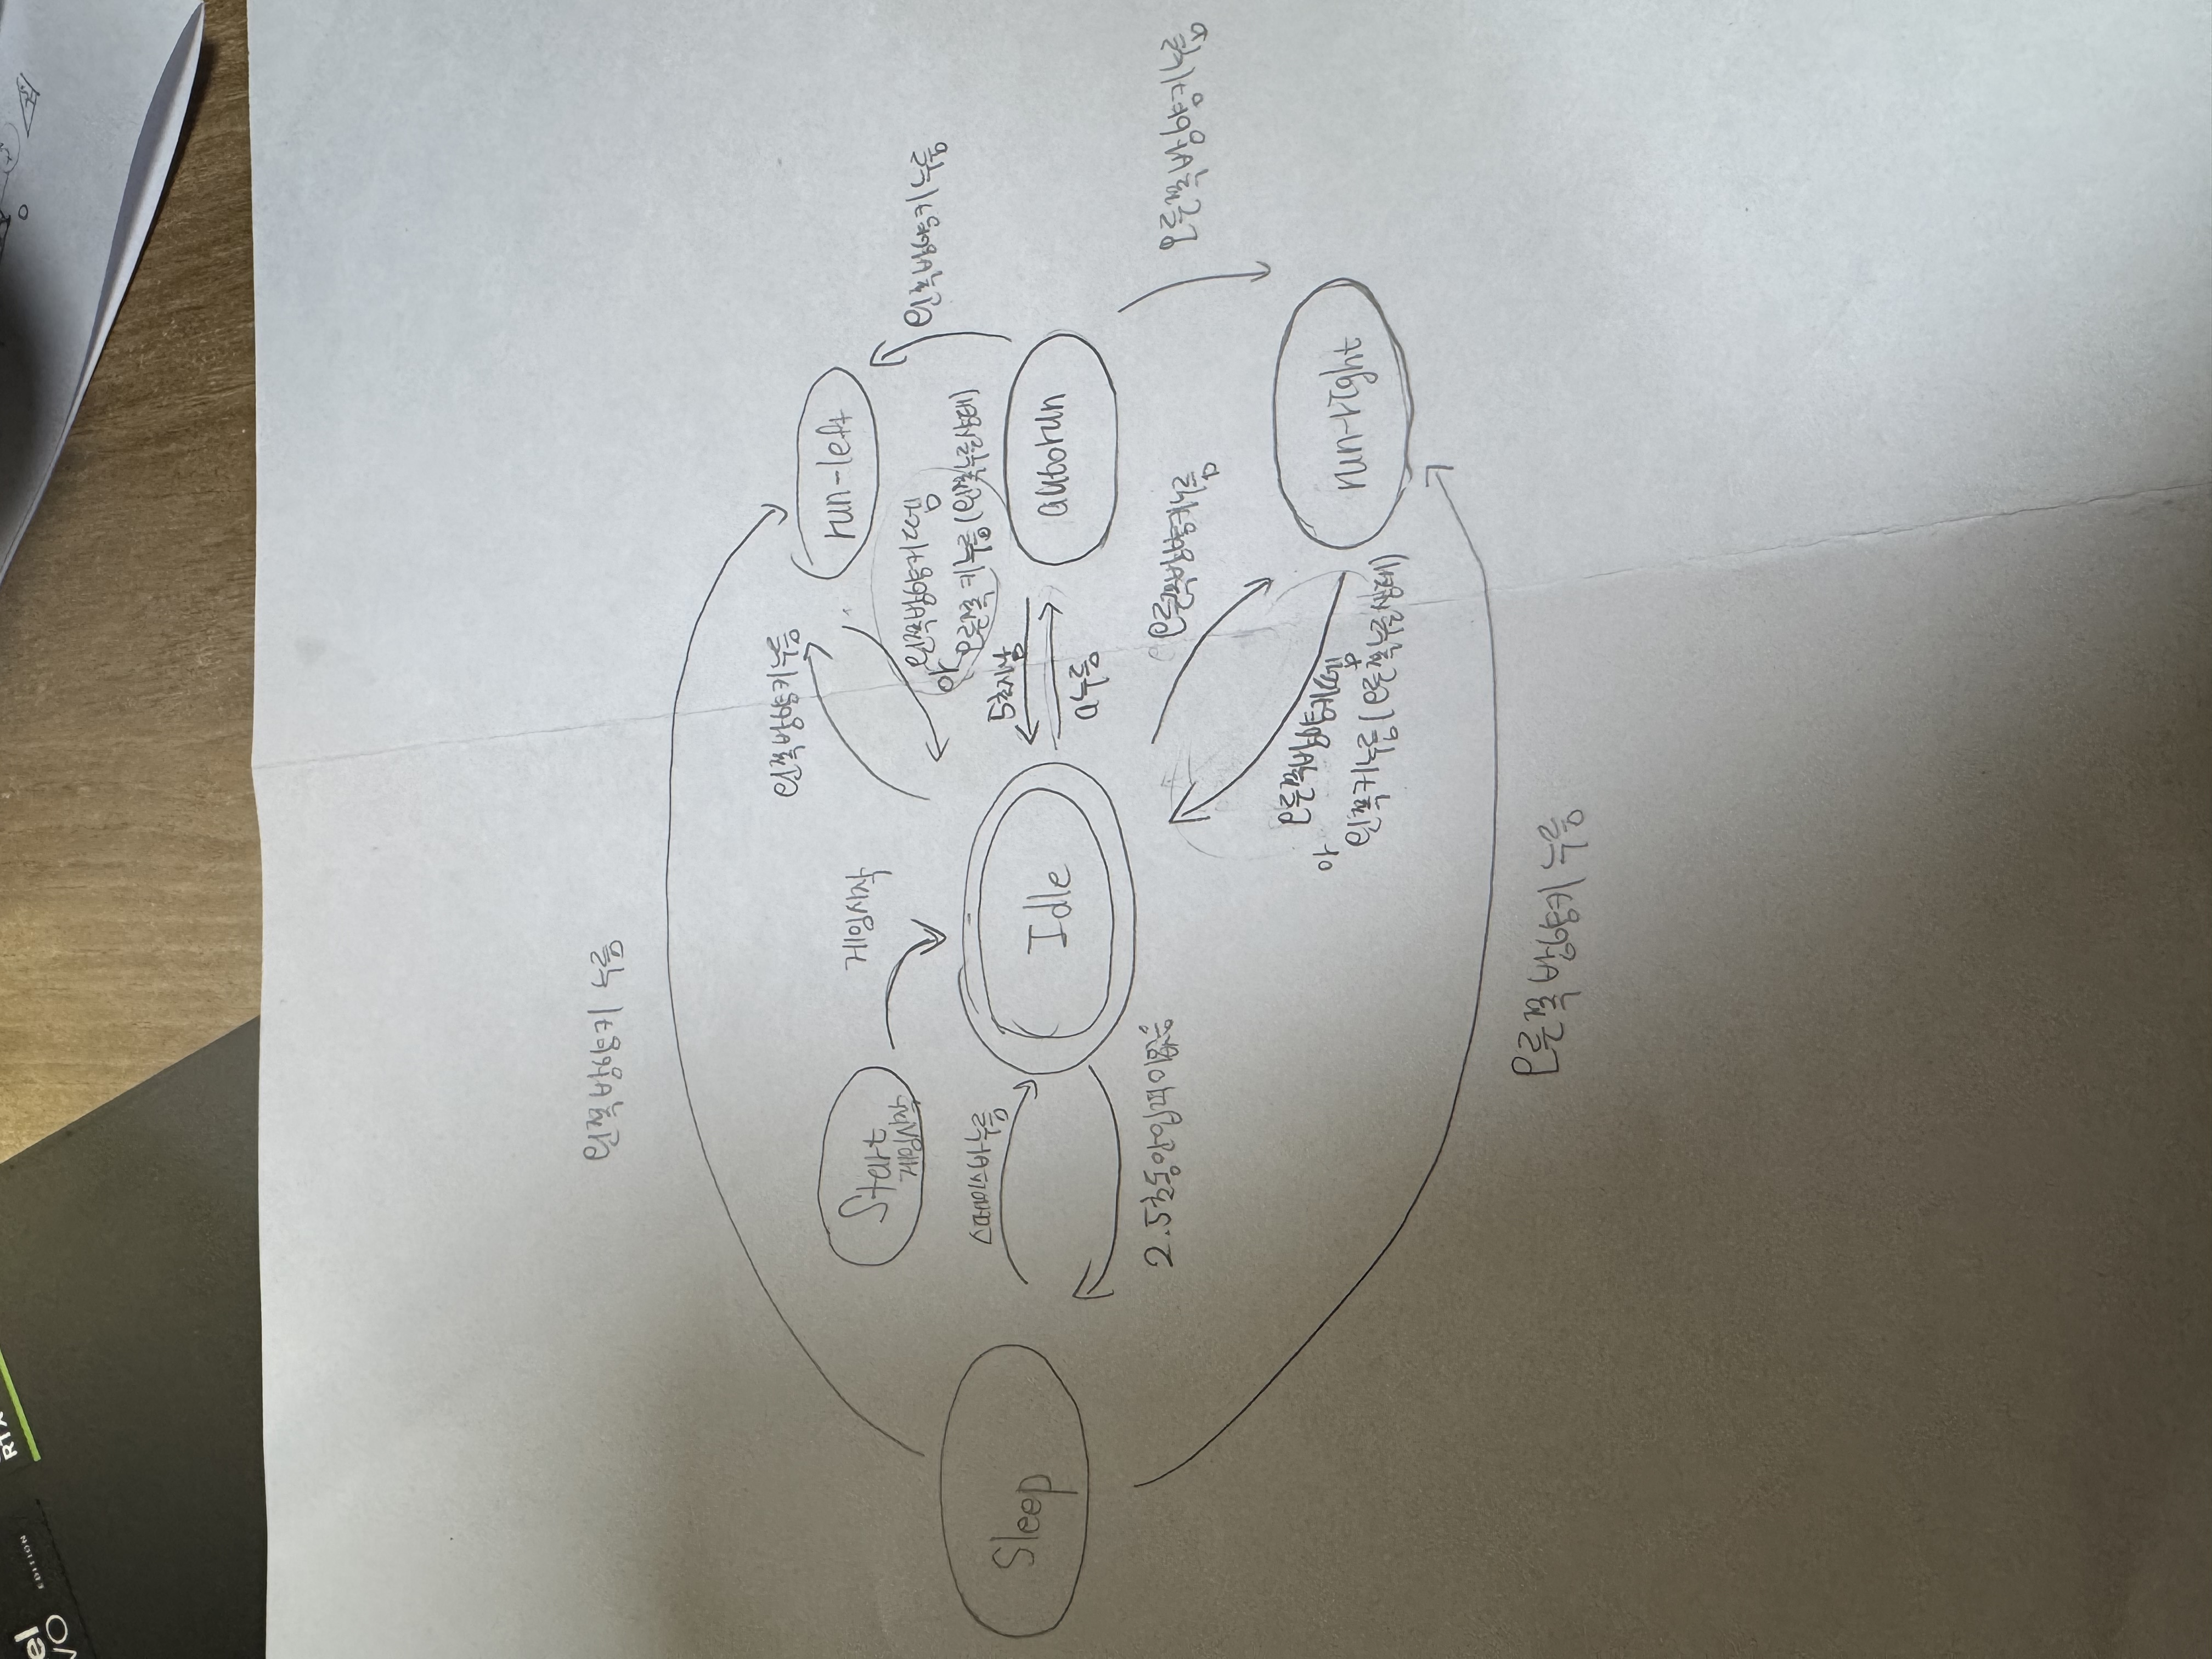 el
VO
EDITION
RTX
왼쪽 방향키 누름
왼쪽 방향키 누름
run-left
Start
게임시작
게임시작
왼쪽방향키 뗌
or
오른쪽 키 누름 (왼쪽누른상태)
왼쪽방향키 누름
Sleep
스페이스바누름
Idle
5초지남
a누름
autorun
2.5초동안입력이없음
오른쪽방향키누름
오른쪽 방향키 누름
오른쪽방향키뗌
or
왼쪽 키누름 (오른쪽누른상태)
run-right
오른쪽 방향키 누름